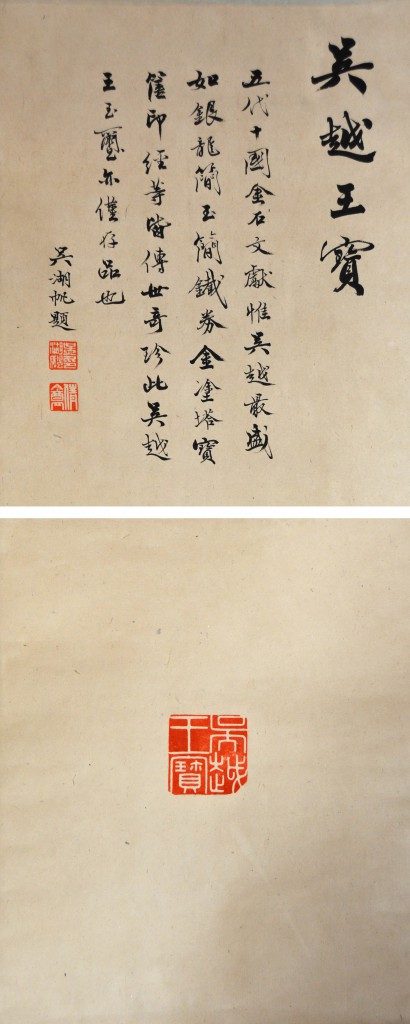 吳越王寶
五代十國金石文獻惟吳越最盛
如銀龍簡玉簡鐵券金塗塔寶
篋印經等皆傳世奇珍此吳越
王玉璽亦僅存品也
吳湖帆題
倩盦
吳越王寶